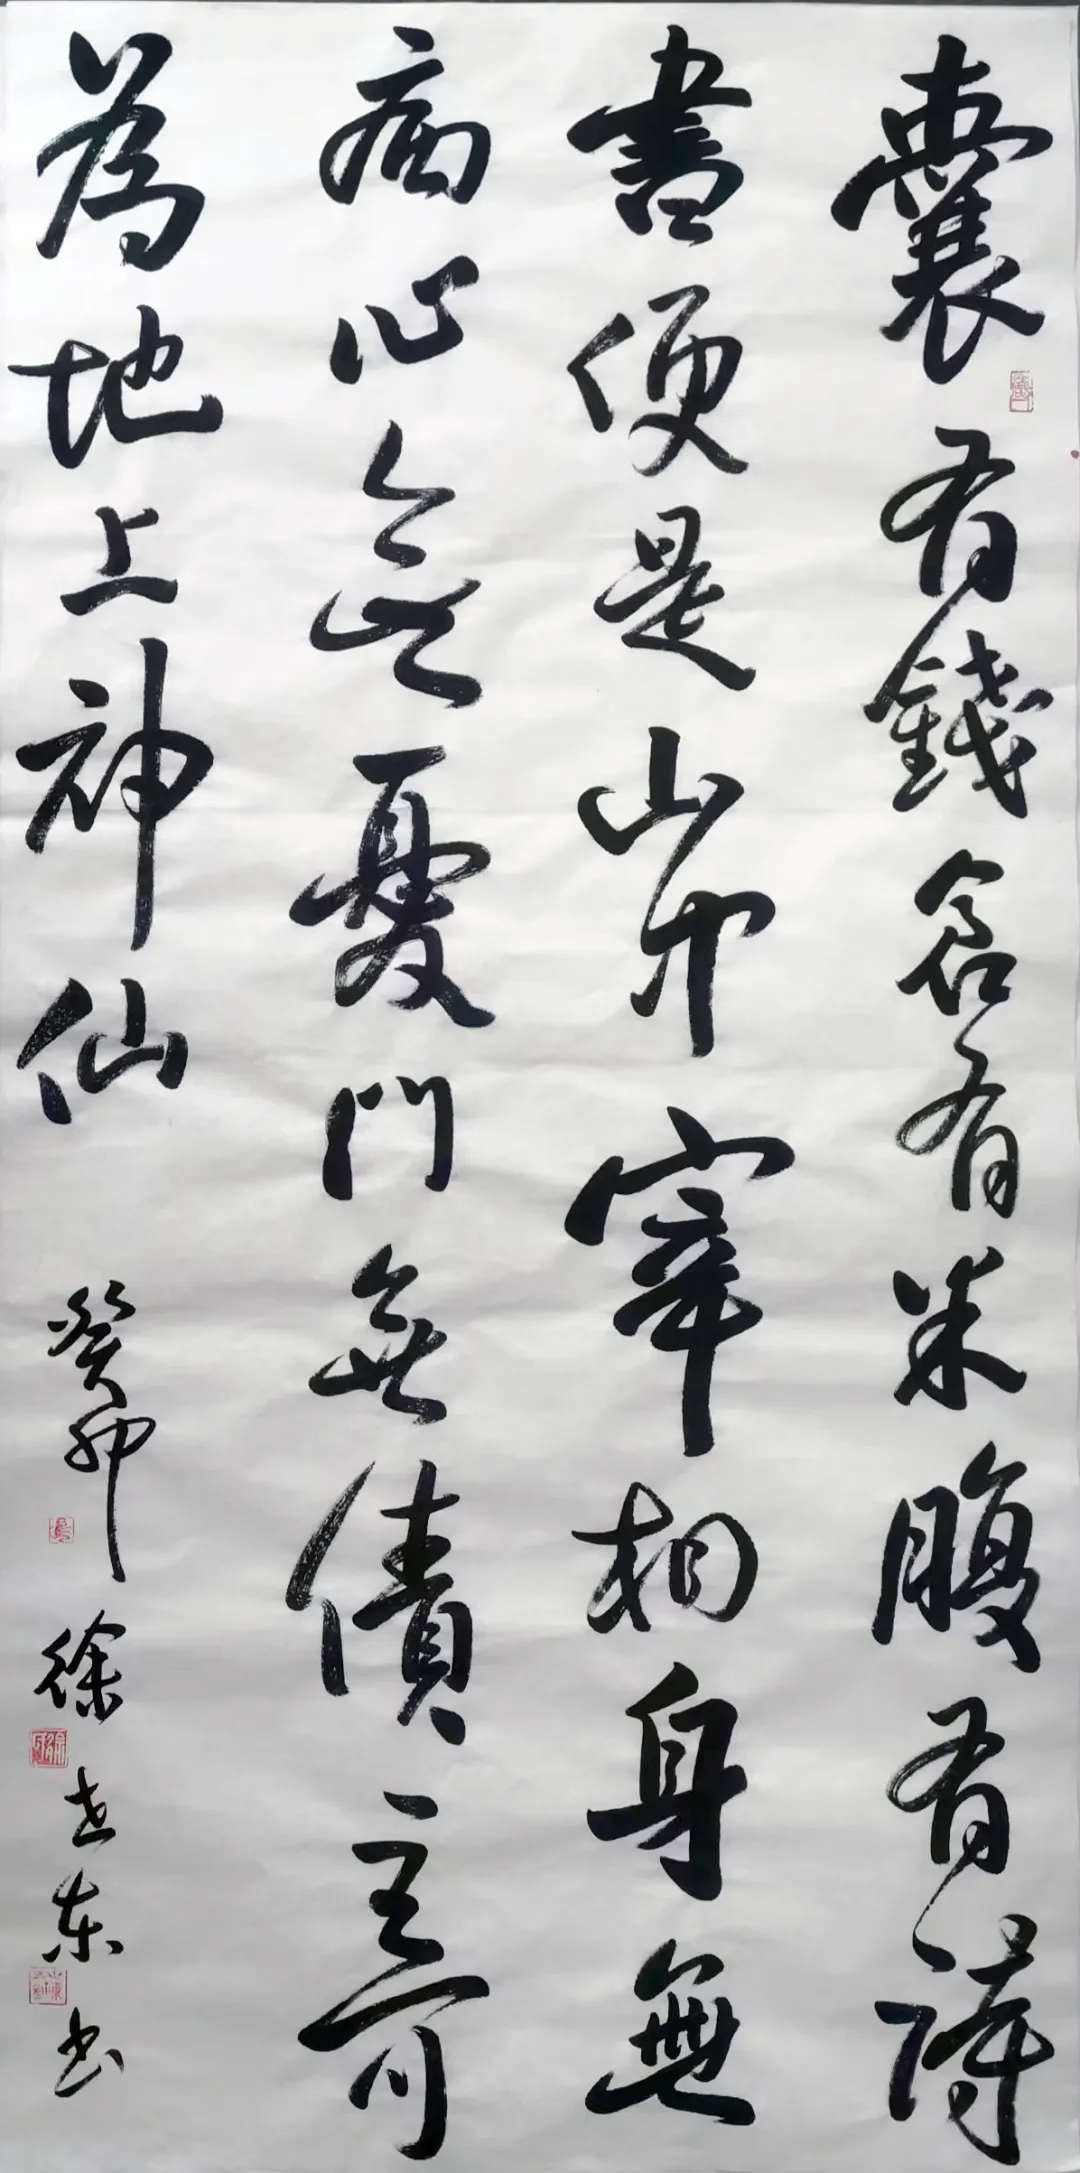 囊有錢倉有米腹有詩
書便是山中宰相身無
病心無憂門無債主可
為地上神仙
癸卯徐志东书